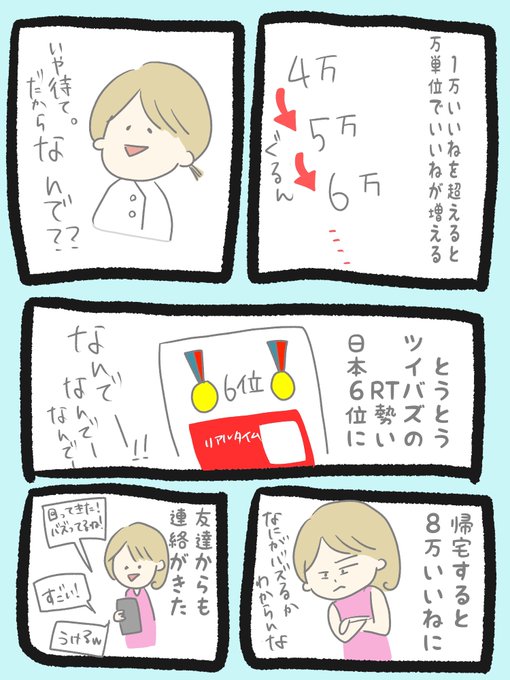 1万いいねを超えると
万単位でいいねが増える
4万
5万
6万
ぐるん
いや待て。
だから
なんで??
とうとう
ツイバズの
RT勢い
日本6位に
6位
リアルタイム
なんで
なんでー
なんでー!!
帰宅すると
8万いいねに
なにがバズるか
わからんな
友達からも
連絡がきた
回ってきた!
バズってるね!
すごい!
うけるw